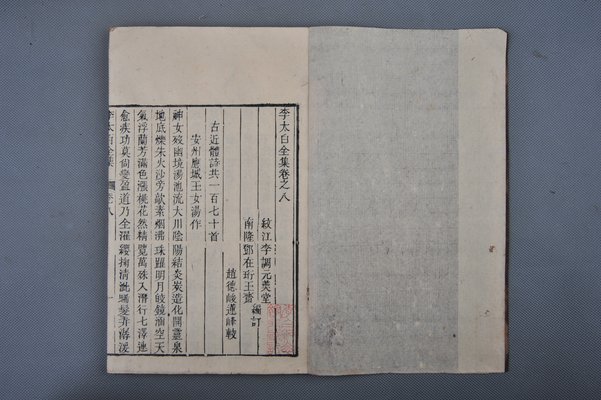 李太白全集卷之八
綿江李調元美堂
南隆鄧在珩玉齋 編訂
趙德峻蓮峰較
右近體詩共一百七十首
安州應城玉女湯作
神女歿幽境湯池流大川陰陽結炎炭造化開靈泉
地底爍朱火沙旁歊素烟沸珠躍明月皎鏡涵空天
氣浮蘭芳滿色漲桃花然精覽萬殊入潛行七澤連
愈疾功莫尚變盈道乃全濯纓掬清泚晞髮弄潺湲
李太白全集 卷八 一